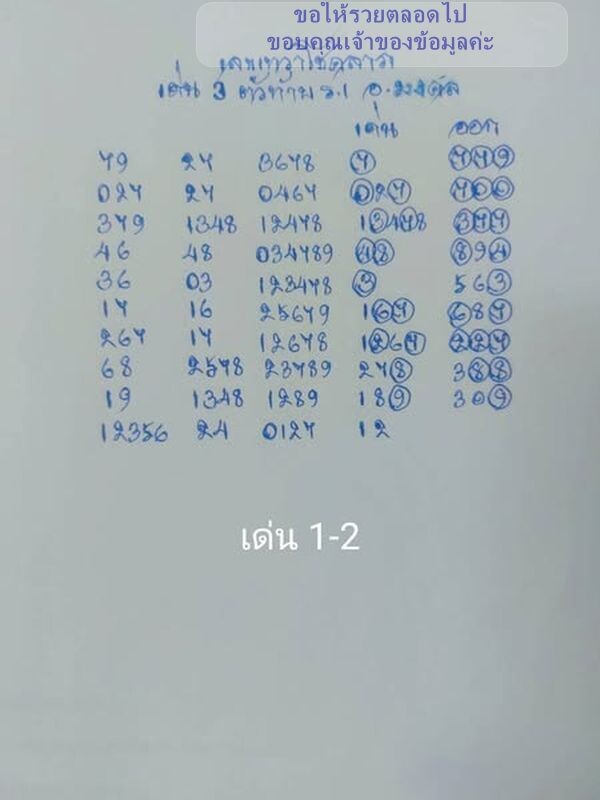 ขอให้รวยตลอดไป
ขอบคุณเจ้าของข้อมูลค่ะ
เด่น 3 ตัวท้าย ร.1 อ.มงคล
เด่น ออก
79 27 3678 7 779
027 27 0467 027 700
379 1348 12478 13478 377
46 48 034789 48 894
36 03 123478 3 563
17 16 25679 167 687
267 17 12678 1267 227
68 2578 23789 278 388
19 1348 1289 189 309
12356 24 0127 12
เด่น 1-2